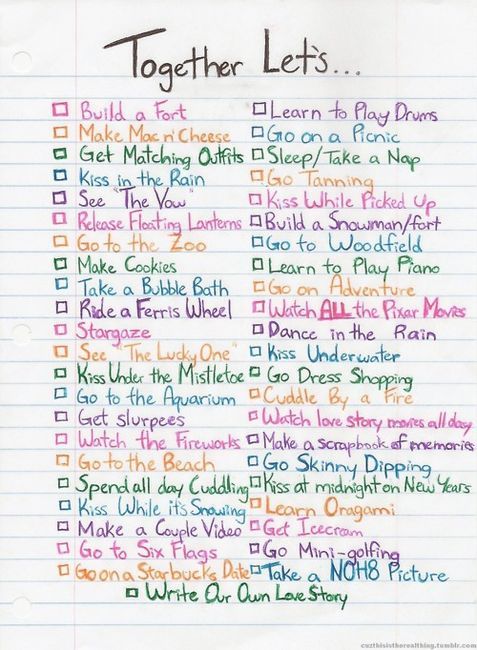 Together Let's...
Build a Fort
Make Mac n' Cheese
Get Matching Outfits
Kiss in the Rain
See "The Vow"
Release Floating Lanterns
Go to the Zoo
Make Cookies
Take a Bubble Bath
Ride a Ferris Wheel
Stargaze
See "The Lucky One"
Kiss Under the Mistletoe
Go to the Aquarium
Get slurpees
Watch the Fireworks
Go to the Beach
Spend all day Cuddling
Kiss While its Snowing
Make a Couple Video
Go to Six Flags
Go on a Starbucks Date
Learn to Play Drums
Go on a Picnic
Sleep/Take a Nap
Go Tanning
Kiss While Picked Up
Build a Snowman/fort
Go to Woodfield
Learn to Play Piano
Go on Adventure
Watch ALL the Pixar Movies
Dance in the Rain
Kiss Underwater
Go Dress Shopping
Cuddle By a Fire
Watch love story movies all day
Make a scrapbook of memories
Go Skinny Dipping
Kiss at midnight on New Years
Learn Oragami
Get Icecream
Go Mini-golfing
Take a NOH8 Picture
Write Our Own Love Story
cuzthisistherealthing.tumblr.com